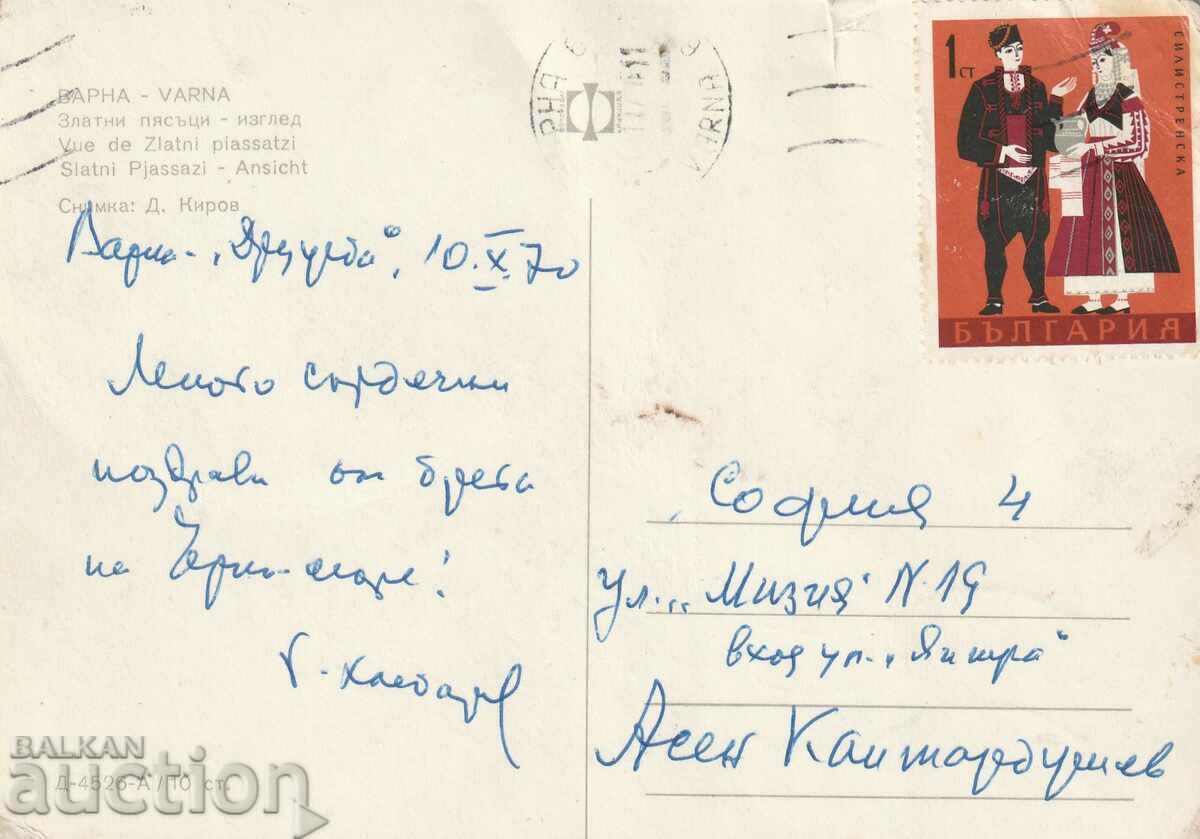 ВАРНА - VARNA
Златни пясъци - изглед
Vue de Zlatni piassatzi
Slatni Pjassazi - Ansicht
Снимка: Д. Киров
Варна - „Дружба“, 10.X.70
Много сърдечни
поздрави от брега
на Черно-море!
Д-4526-А / 10 ст.
BALKAN
auction
VARNA
1 СТ
СИЛИСТРЕНСКА
БЪЛГАРИЯ
София 4
ул. „Мизия“ N 19
вход ул. „Янтра“
Асен Кантарджиев